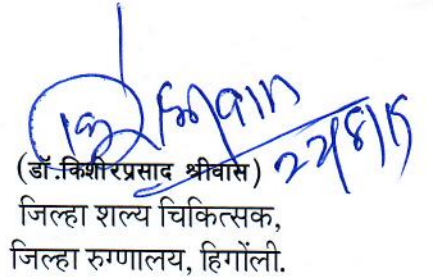 (डॉ.किशोरप्रसाद श्रीवास)
जिल्हा शल्य चिकित्सक,
जिल्हा रुग्णालय, हिगोंली.